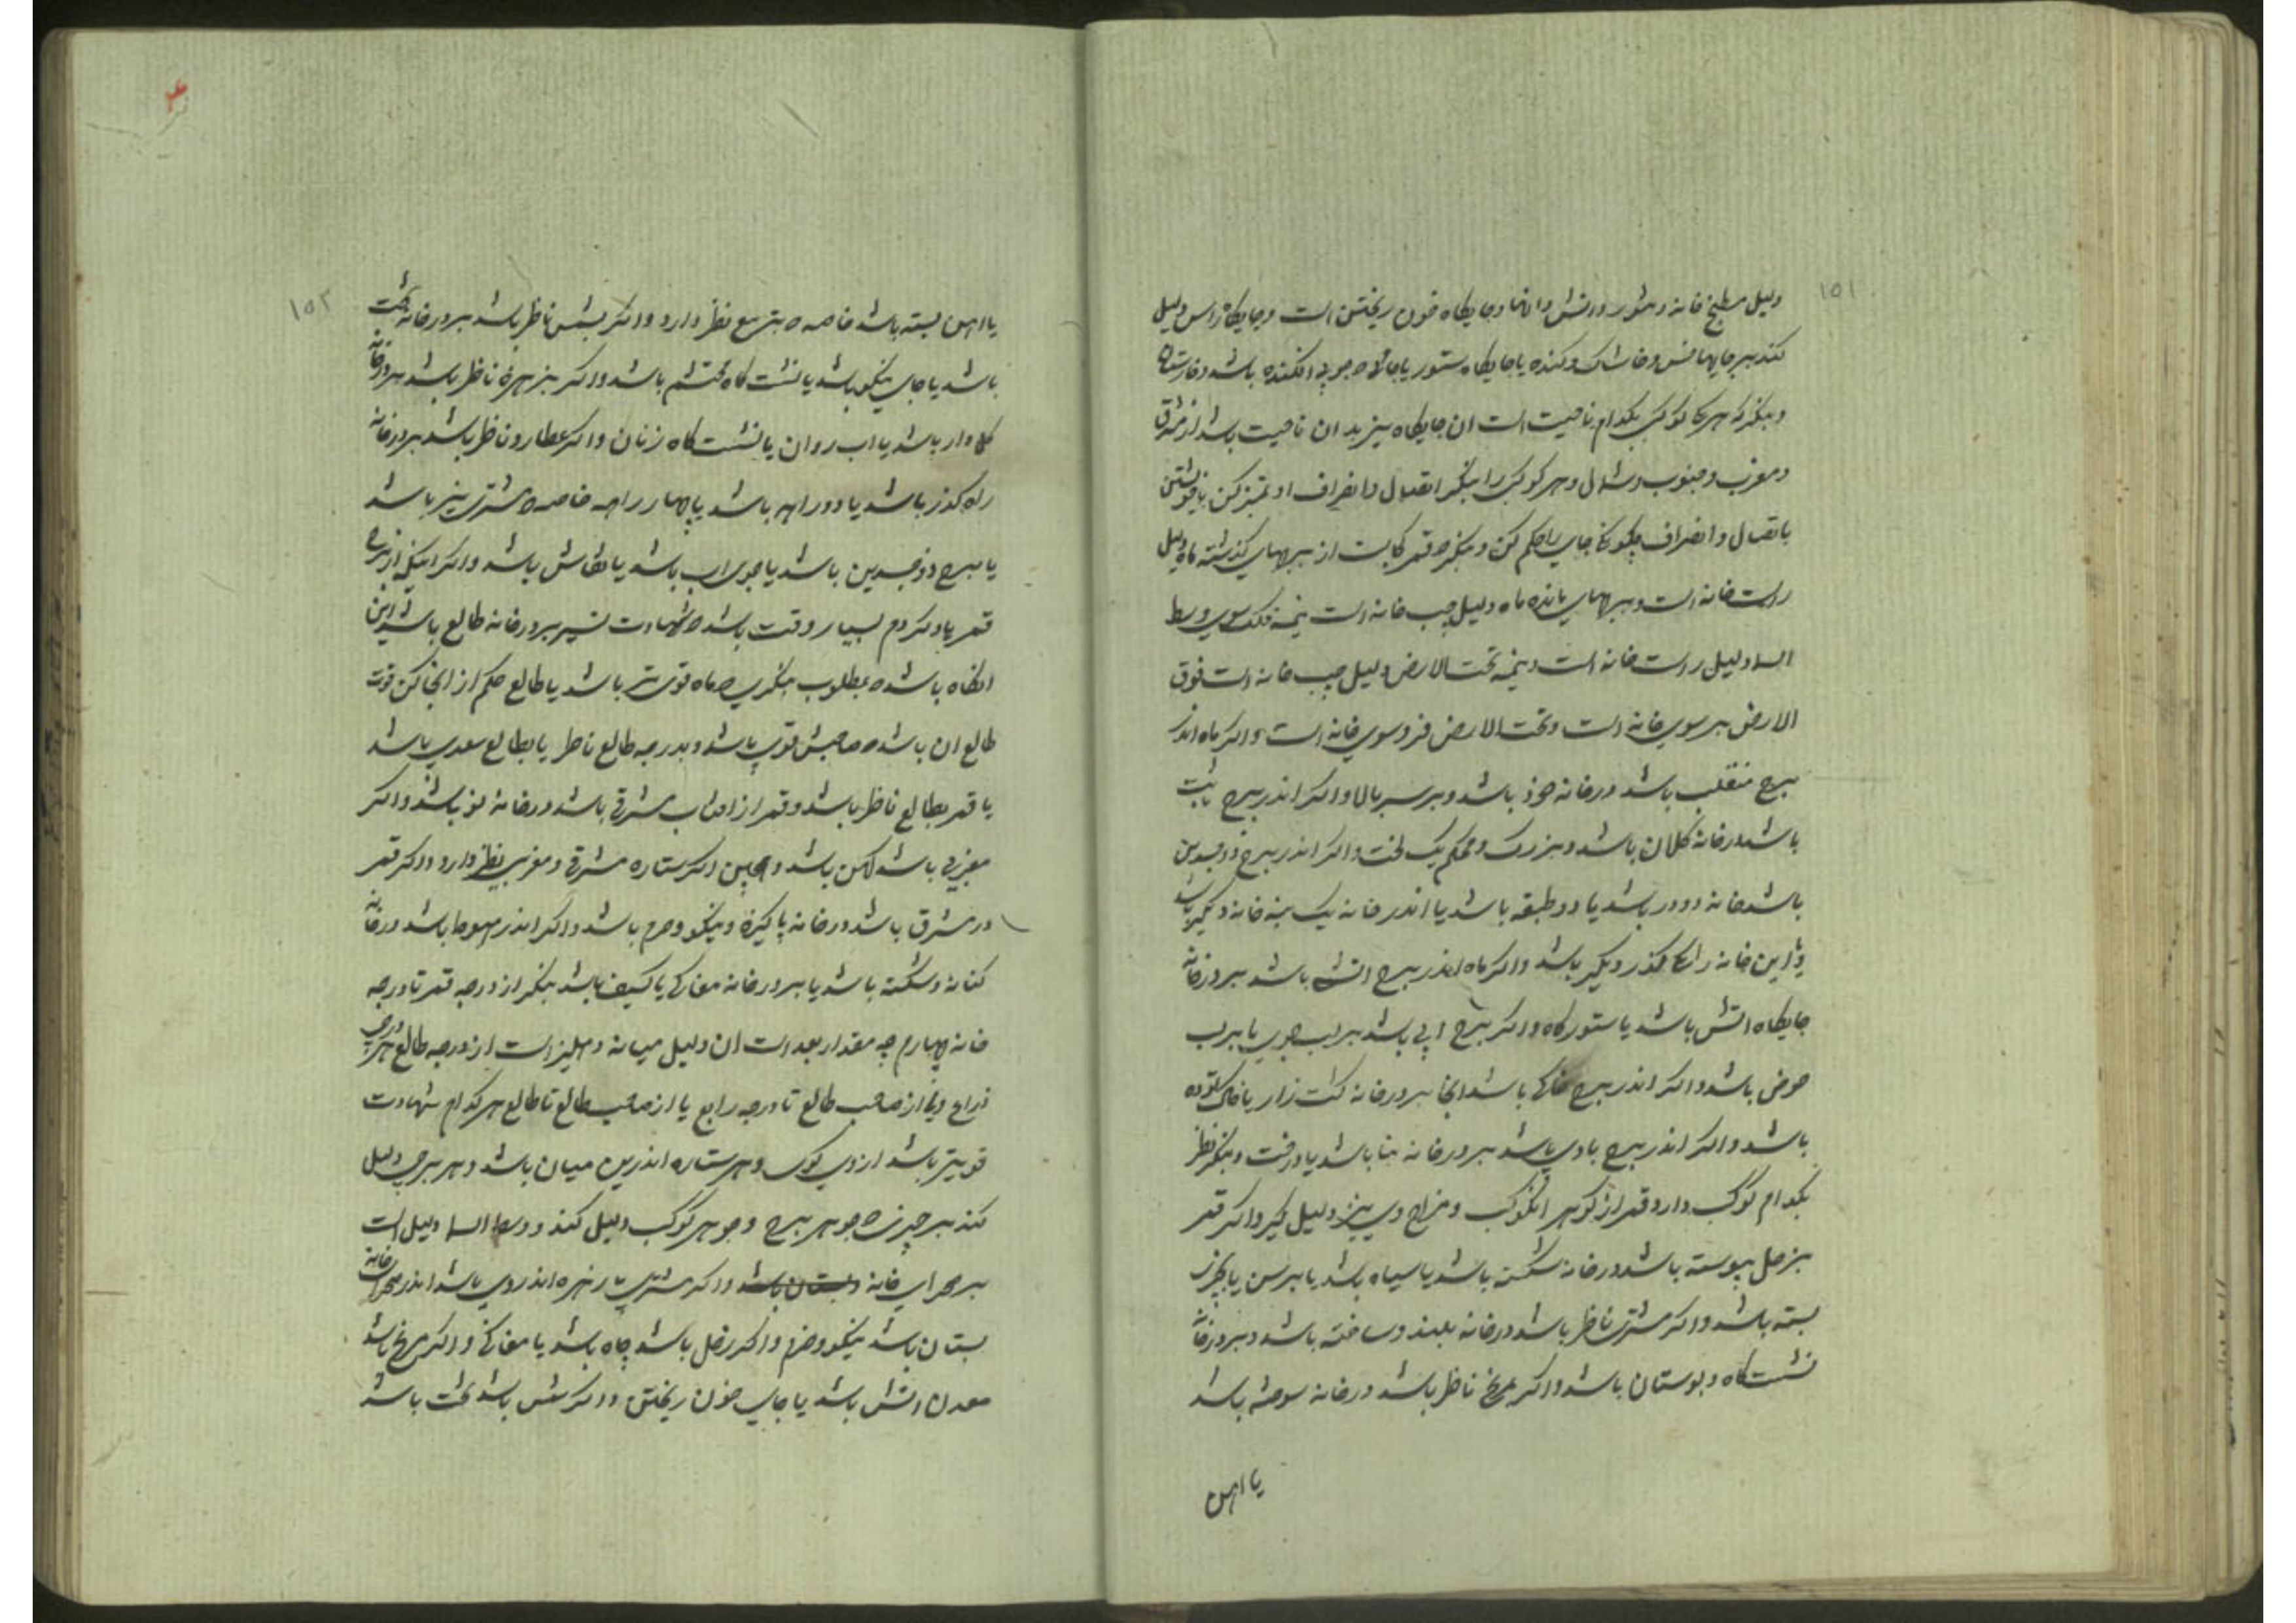 ۱۵۱
دلیل مطبخ خانه و تنور و آتش دانها و جایکاه خون ریختن است و جایکاه راس دلیل
کند بر جایها خس و خاشاک و کنده یا جایکاه ستور یا جائی که چوبی افکنده باشد و خارستان
و بنکر که هر کوکبی بکدام ناحیت است ان جایکاه نیز بدان ناحیت باشد از مشرق
و مغرب و جنوب و شمال و هر کوکبی را بنکر اتصال و انصراف او تمیز کن
باتصال و انصراف چکونکی جای را حکم کن و بنکر که قمر کجاست از برجهای کذشته ماه دلیل
راست خانه است و برجهای مانده ماه دلیل چپ خانه است نیمه فلک سوی وسط
السما دلیل راست خانه است و نیمه تحت الارض دلیل چپ خانه است فوق
الارض بر سوی خانه است و تحت الارض فرو سوی خانه است و اکر ماه اندر
برج منقلب باشد در خانه خود باشد و بر سر بالا و اکر اندر برج ثابت
باشد در خانه کلان باشد و بزرک و محکم یک لخت و اکر اندر برج ذوجسدین
باشد خانه دو در باشد یا دو طبقه باشد یا اندر خانه یک نیمه خانه دیکر باشد
و این خانه را کذر دیکر باشد و اکر ماه اندر برج اتشی باشد بر در خانه
جایکاه اتش باشد یا ستورکاه و اکر برج ابی باشد بر لب جوی یا بر لب
حوض باشد و اکر اندر برج خاکی باشد انجا بر در خانه کشت زار یا خاک توده
باشد و اکر اندر برج بادی باشد بر در خانه بنا باشد یا درخت و بنکر نظر
بکدام کوکب دارد قمر از کوهر انکوکب و مزاج وی نیز دلیل کیر و اکر قمر
بزحل پیوسته باشد در خانه شکسته باشد یا سیاه باشد یا برسن یا بچیزی
بسته باشد و اکر مشتری ناظر باشد در خانه بلند و ساخته باشد و بر در خانه
نشستکاه و بوستان باشد و اکر مریخ ناظر باشد در خانه سوخته باشد
یا اهن
۱۵۲
یا اهن بسته باشد خاصه که بتربیع نظر دارد و اکر بشمس ناظر باشد بر در خانه تخت
باشد یا جای نیکو باشد یا نشستکاه محتشم باشد و اکر بزهره ناظر باشد بر در خانه
باشد یا اب روان یا نشستکاه زنان و اکر عطارد ناظر باشد بر در خانه
راه کذر باشد یا دو راهه باشد یا چهار راهه خاصه که مشتری نیز باشد
یا برج ذوجسدین باشد یا جوی اب باشد یا نقاش باشد و اکر اینکه از برج
قمر یاد کردم بسیار وقت باشد که شهادت نیز بر در خانه طالع باشد این
انکاه باشد که بمطلوب بنکری که ماه قوی تر باشد یا طالع حکم از انجا کن قوت
طالع ان باشد که صاحبش قوی باشد و بدرجه طالع ناظر یا بطالع سعدی باشد
یا قمر بطالع ناظر باشد و قمر از افتاب مشرقی باشد در خانه نو باشد و اکر
مغربی باشد کهن باشد و همچنین اکر ستاره مشرقی و مغربی نظر دارد و اکر قمر
در مشرق باشد در خانه پاکیزه و نیکو و خرم باشد و اکر اندر هبوط باشد در خانه
کهنه و شکسته باشد یا بر در خانه مغاکی یا کنیف باشد بنکر از درجه قمر تا درجه
خانه چهارم چه مقدار بعد است ان دلیل میانه دهلیز است از درجه طالع هر درجه
ذراع و نیم از صاحب طالع تا درجه رابع یا از صاحب طالع تا طالع هر کدام شهادت
قویتر باشد از وی کوی و هر ستاره اندرین میان باشد و هر برجی دلیل
کند بر چیزی که جوهر برج و جوهر کوکب دلیل کند و وسط السما دلیل است
بر صحرای خانه و بستان باشد و اکر مشتری یا زهره اندر وی باشد اندر صحرا خانه
بستان باشد نیکو و خرم و اکر زحل باشد چاه باشد یا مغاکی و اکر مریخ باشد
معدن اتش باشد یا جای خون ریختن و اکر شمس باشد تخت باشد